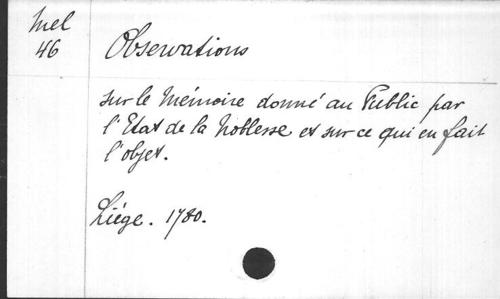 Mel
46
Observations
sur le Mémoire donné au Public par
l'Etat de la Noblesse et sur ce qui en fait
l'objet.
Liége. 1780.